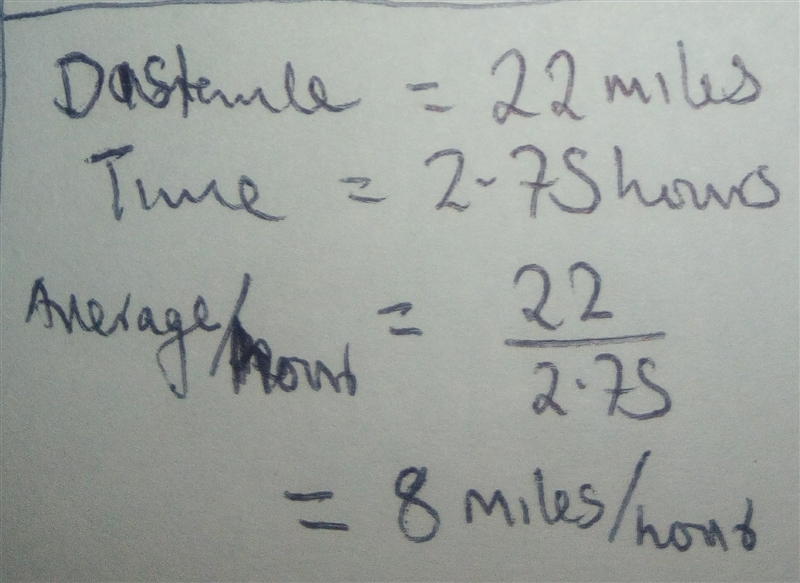 Distance = 22 miles
Time = 2.75 hours
Average/hour = 22/2.75
= 8 miles/hour